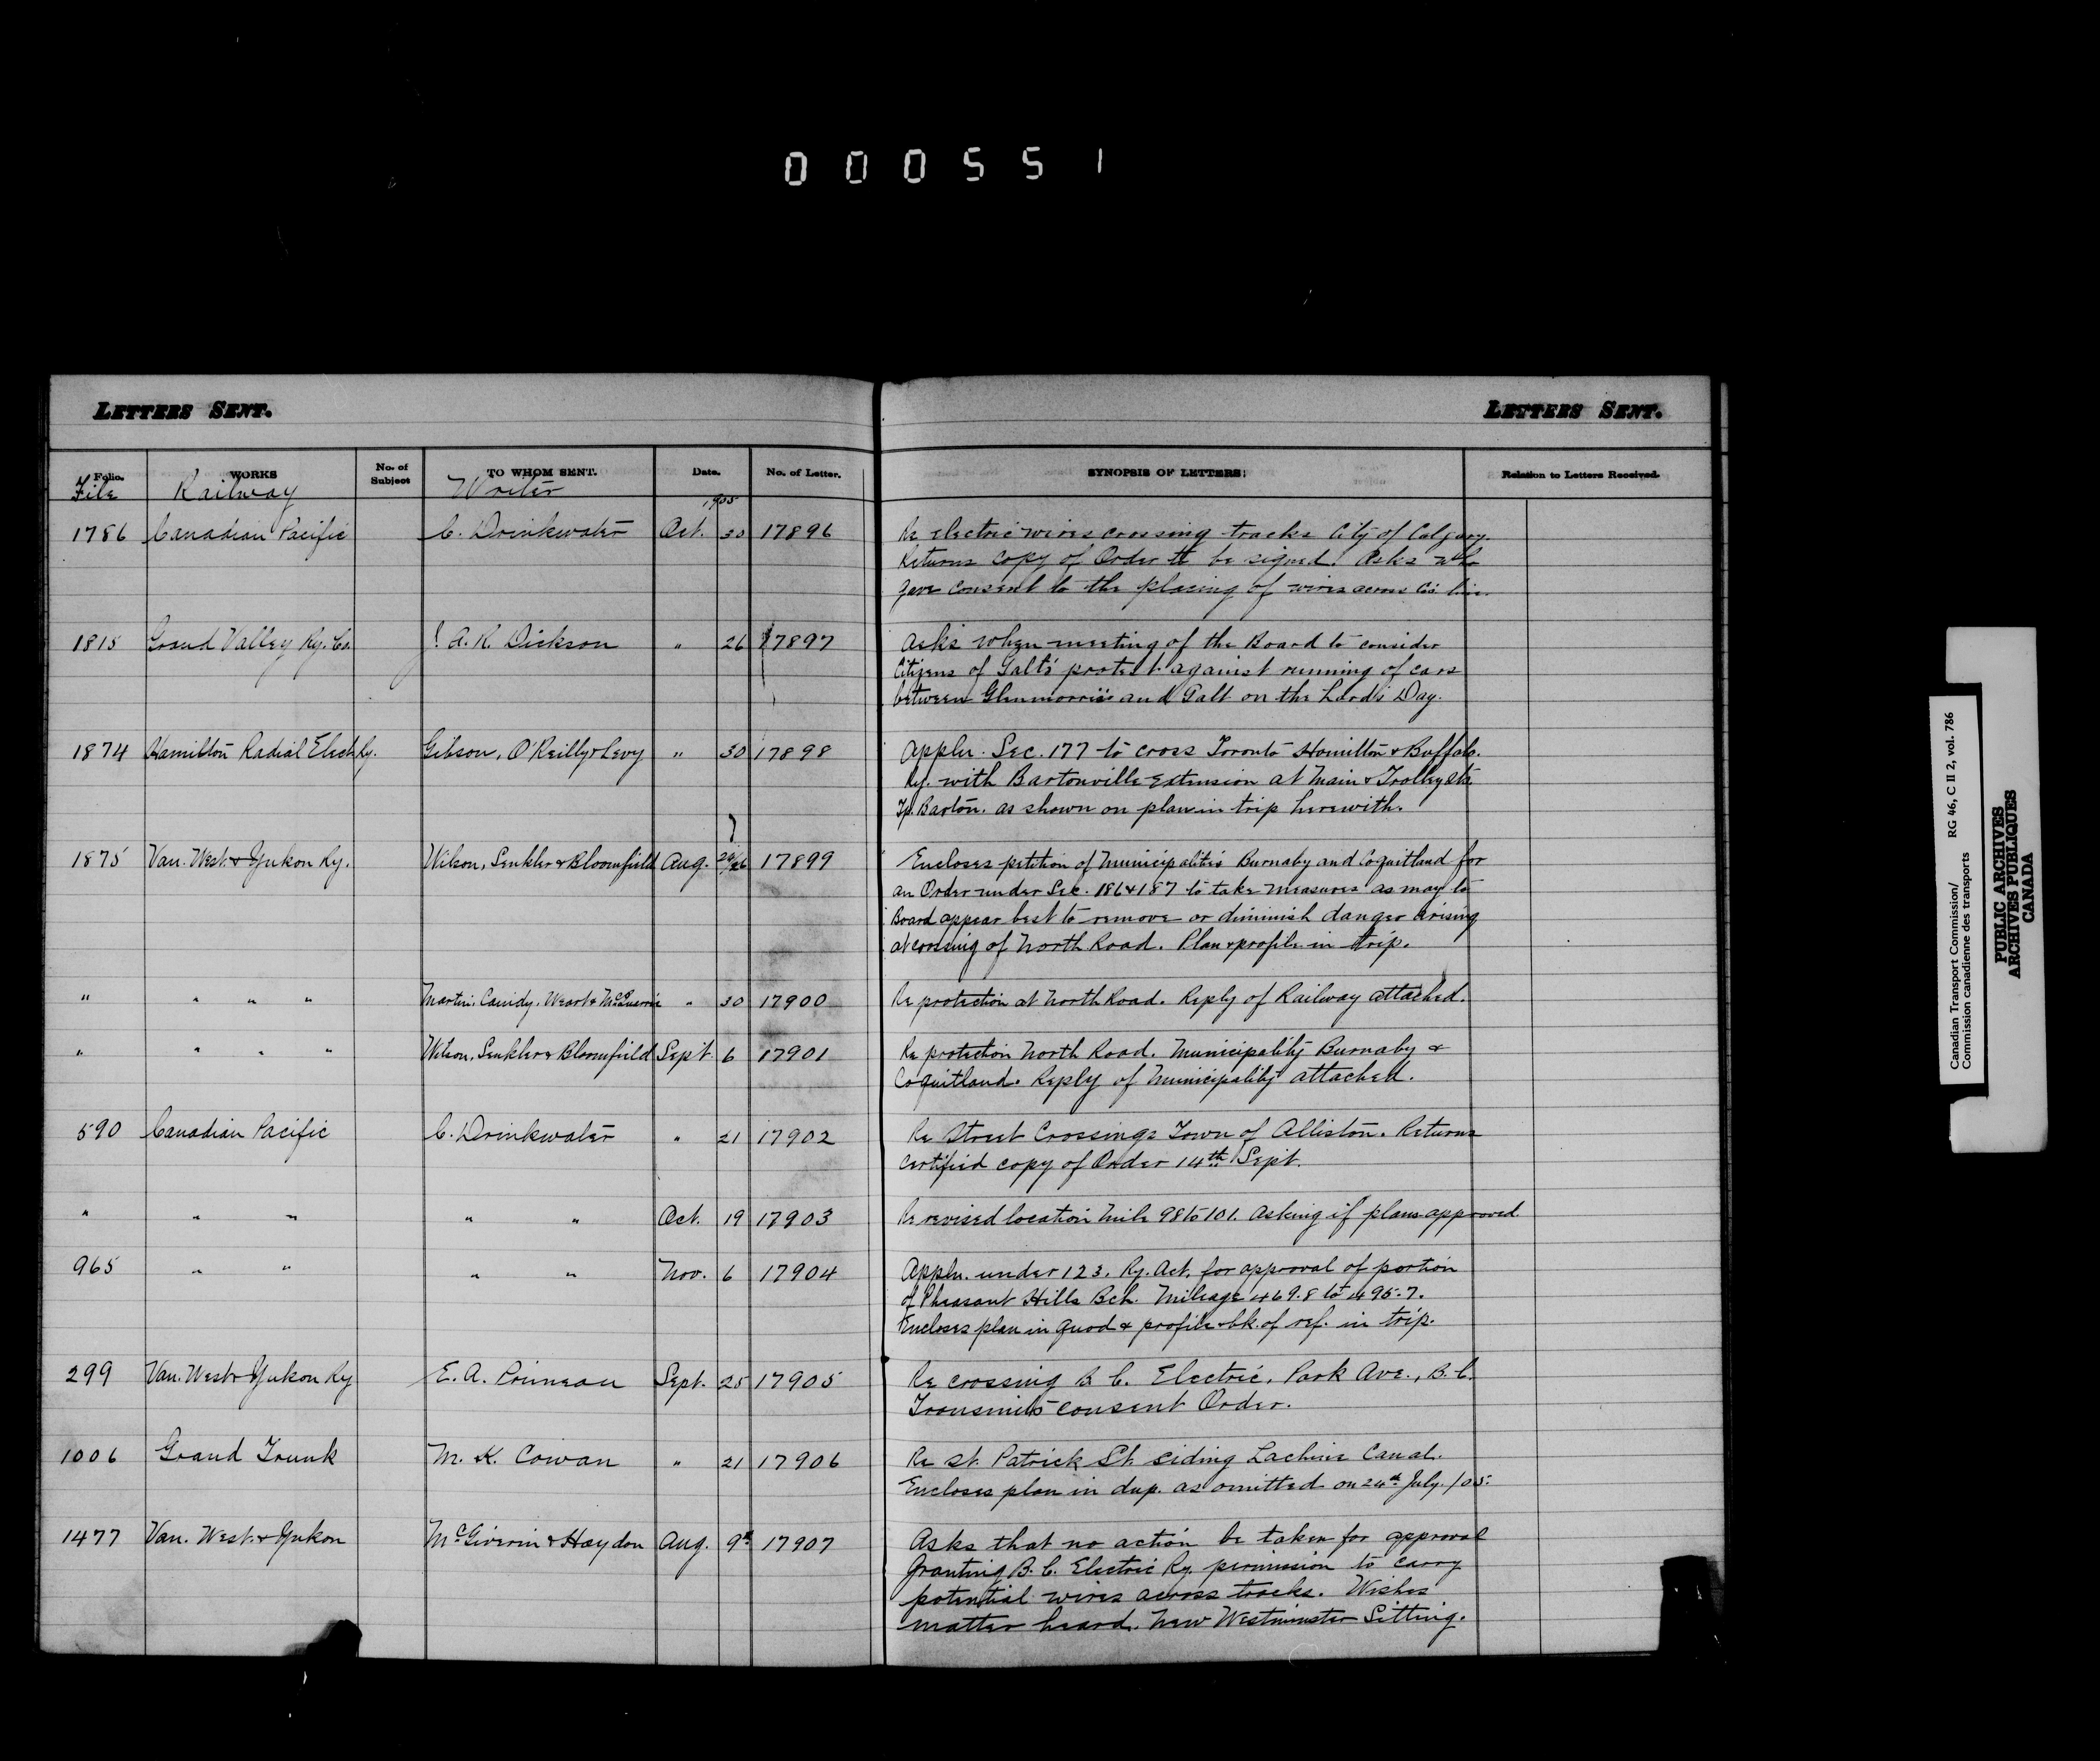 000551
LETTERS SENT.
LETTERS SENT.
Folio. WORKS No. of Subject TO WHOM SENT. Date. No. of Letter. SYNOPSIS OF LETTERS: Relation to Letters Received.
File Railway Writer 1905
1786 Canadian Pacific C. Drinkwater Oct. 30 17896 Re electric wires crossing tracks City of Calgary.
Returns copy of Order to be signed. Asks who
gave consent to the placing of wires across Co's line.
1815 Grand Valley Ry. Co. J. A. R. Dickson " 26 17897 Asks when meeting of the Board to consider
Citizens of Galt's protest against running of cars
between Glenmorris and Galt on the Lord's Day.
1874 Hamilton Radial Elect. Ry. Gibson, O'Reilly & Levy " 30 17898 Appln. Sec. 177 to cross Toronto Hamilton & Buffalo.
Ry. with Bartonville Extension at Main & Trolley sts
Tp. Barton. as shown on plan in trip herewith.
1875 Van. West. & Yukon Ry. Wilson, Senkler & Bloomfield Aug. 24/26 17899 Encloses petition of Municipalities Burnaby and Coquitland for
an Order under Sec. 186 & 187 to take measures as may to
Board appear best to remove or diminish danger arising
at crossing of North Road. Plan & profile in trip.
" " " " Martin, Cassidy, Weart & McQuarrie " 30 17900 Re protection at North Road. Reply of Railway attached.
" " " " Wilson, Senkler & Bloomfield Sept. 6 17901 Re protection North Road. Municipality Burnaby &
Coquitland. Reply of Municipality attached.
590 Canadian Pacific C. Drinkwater " 21 17902 Re Street Crossings Town of Alliston. Returns
certified copy of Order 14th Sept.
" " " " " Oct. 19 17903 Re revised location Mile 98 to 101. Asking if plans approved.
965 " " " " Nov. 6 17904 Appln. under 123, Ry. Act, for approval of portion
of Pheasant Hills Bch. Mileage 469.8 to 495.7.
Encloses plan in quod & profile & bk. of ref. in trip.
299 Van. West & Yukon Ry E. A. Primeau Sept. 25 17905 Re crossing B. C. Electric, Park Ave., B.C.
Transmits consent Order.
1006 Grand Trunk M. K. Cowan " 21 17906 Re St. Patrick St. siding Lachine Canal.
Encloses plan in dup. as omitted on 24th July /05.
1477 Van. West. & Yukon McGiverin & Haydon Aug. 9th 17907 Asks that no action be taken for approval
granting B. C. Electric Ry. permission to carry
potential wires across tracks. Wishes
matter heard. New Westminster Sitting.
Canadian Transport Commission/ RG 46, C II 2, vol. 786
Commission canadienne des transports
PUBLIC ARCHIVES
ARCHIVES PUBLIQUES
CANADA